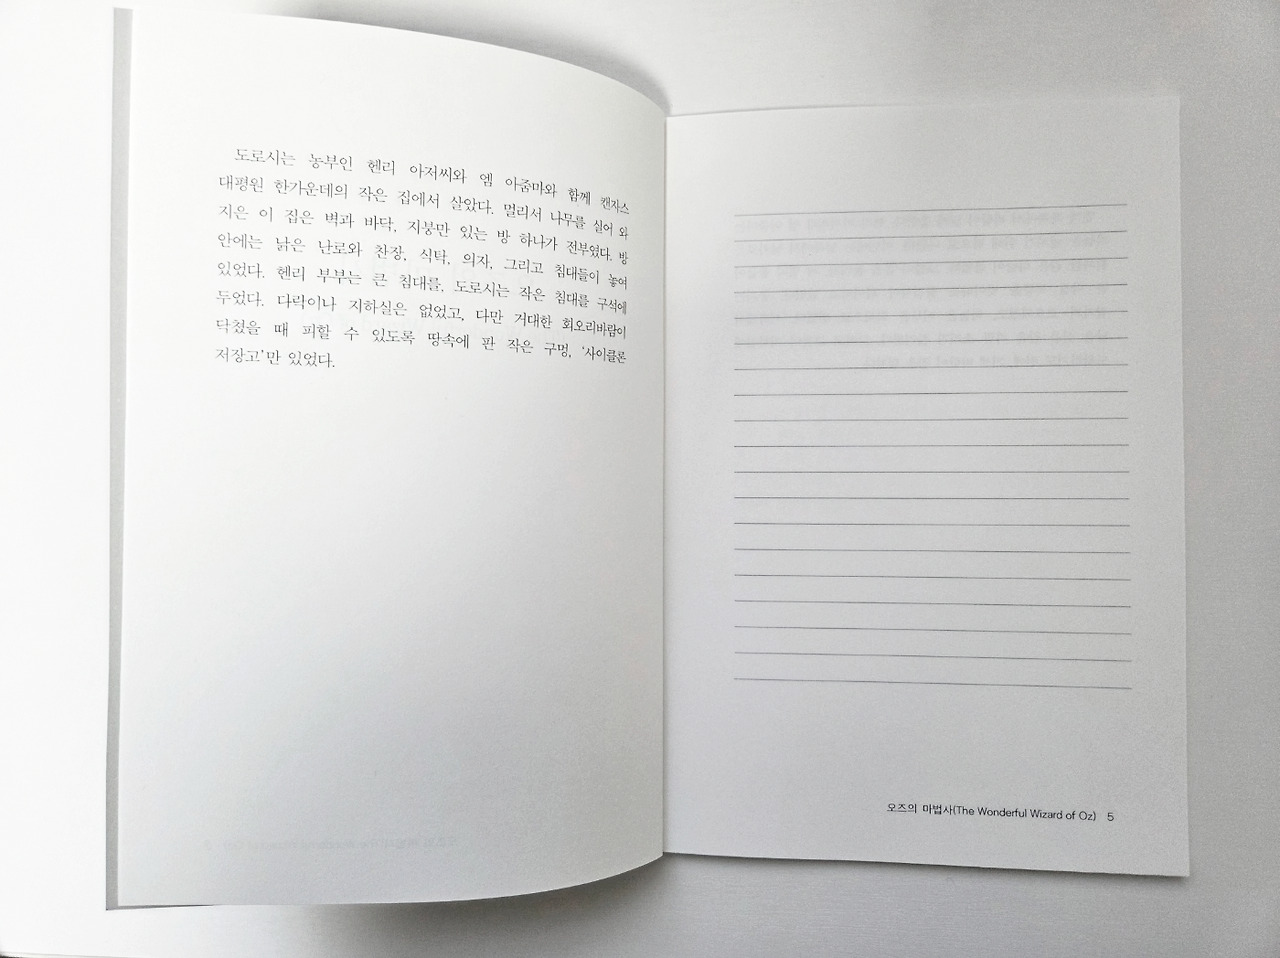 도로시는 농부인 헨리 아저씨와 엠 아줌마와 함께 캔자스
대평원 한가운데의 작은 집에서 살았다. 멀리서 나무를 실어 와
지은 이 집은 벽과 바닥, 지붕만 있는 방 하나가 전부였다. 방
안에는 낡은 난로와 찬장, 식탁, 의자, 그리고 침대들이 놓여
있었다. 헨리 부부는 큰 침대를, 도로시는 작은 침대를 구석에
두었다. 다락이나 지하실은 없었고, 다만 거대한 회오리바람이
닥쳤을 때 피할 수 있도록 땅속에 판 작은 구멍, ‘사이클론
저장고’만 있었다.
오즈의 마법사(The Wonderful Wizard of Oz) 5